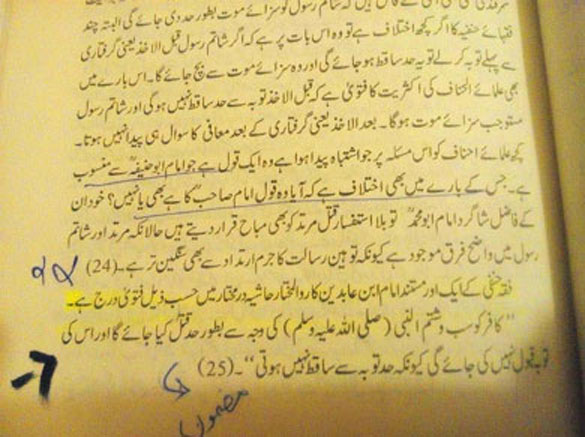 فقہائے حنفیہ کا اگر کچھ اختلاف ہے تو وہ اس بات پر ہے کہ اگر شاتم رسول قبل الاخذ یعنی گرفتاری
سے پہلے توبہ کر لے تو حد ساقط ہو جائے گی اور وہ سزائے موت سے بچ جائے گا۔ اس بارے میں
بھی علمائے احناف کی اکثریت کا فتویٰ ہے کہ قبل الاخذ توبہ سے حد ساقط نہیں ہوگی اور شاتم رسول
مستوجب سزائے موت ہوگا۔ بعد الاخذ یعنی گرفتاری کے بعد معافی کا سوال ہی پیدا نہیں ہوتا۔
کچھ علمائے احناف کو اس مسئلہ پر جو اشتباہ پیدا ہوا ہے وہ ایک قول ہے جو امام ابو حنیفہؒ سے منسوب
ہے۔ جس کے بارے میں بھی اختلاف ہے کہ آیا وہ قول امام صاحبؒ کا ہے بھی یا نہیں؟ خود ان
کے فاضل شاگرد امام ابو محمدؒ تو بلا استفسار قتل مرتد کو بھی مباح قرار دیتے ہیں حالانکہ مرتد اور شاتم
رسول میں واضح فرق موجود ہے کیونکہ توہین رسالت کا جرم ارتداد سے بھی سنگین تر ہے۔ (24)
فقہ حنفی کے ایک اور مستند امام ابن عابدین کا رد المختار حاشیہ در مختار میں حسب ذیل فتویٰ درج ہے۔
"کافر کو سب و شتم النبی (صلی اللہ علیہ وسلم) کی وجہ سے بطور حد قتل کیا جائے گا اور اس کی
توبہ قبول نہیں کی جائے گی کیونکہ حد توبہ سے ساقط نہیں ہوتی"۔ (25)